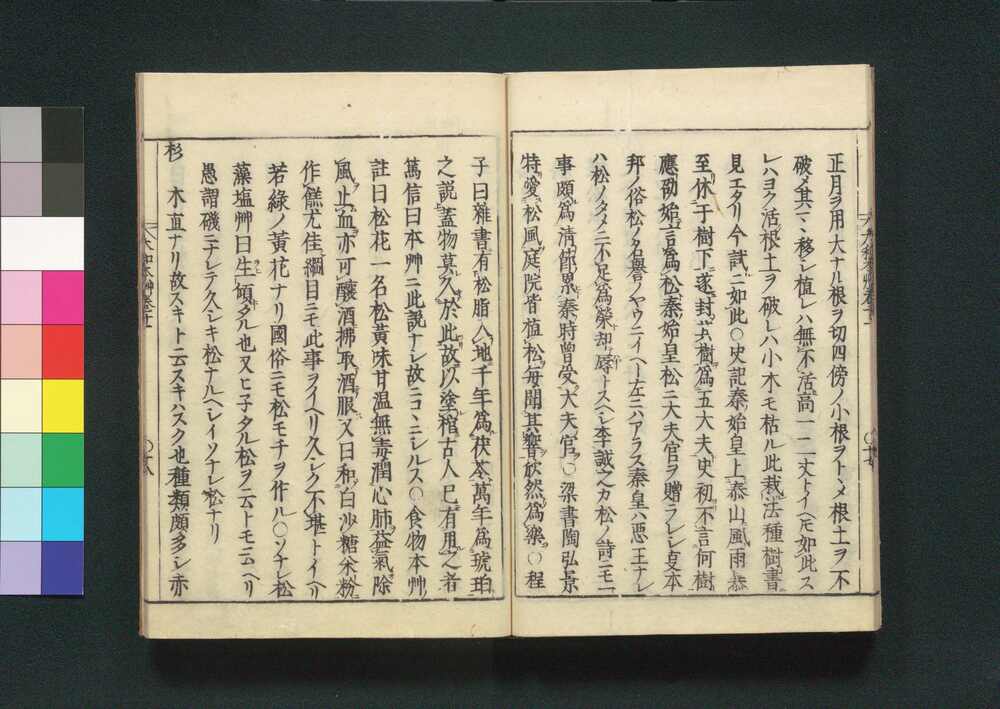 正月ヲ用大ナル根ヲ切四傍ノ小根ヲトヾメ根土ヲ不
破〆其マヽ移シ植レハ無不活高一二丈トイヘ𪜈如此ス
レハヨク活根土ヲ破レハ小木モ枯ル此栽法種樹書
見エタリ今試ニ如此○史記秦始皇上泰山風雨暴
至休于樹下遂封其樹爲五大夫史初不言何樹
應劭始言爲松秦始皇松ニ大夫官ヲ贈ラレシ叓本
邦ノ俗松ノ名譽ノヤウニイヘトモ左ニハアラス秦皇ハ悪王ナレ
ハ松ノタメニ不足爲榮却辱トスヘシ李誠之カ松ノ詩ニモ一
事頗爲清節累秦時曽受大夫官○梁書陶弘景
特愛松風庭院皆植松毎聞其響欣然爲樂○程
子曰雜書有松脂入地千年爲茯苓萬年爲琥珀
之説蓋物莫久於此故以塗棺古人已有用之者
篤信曰本艸ニ此説ナシ故ニコヽニシルス○食物本艸
註曰松花一名松黄味甘温無毒潤心肺益氣除
風止血亦可釀酒拂取酒服又曰和白沙糖米粉
作餻尤佳綱目ニモ此事ヲイヘリ久シク不堪トイヘリ
若綠ノ黄花ナリ國俗ニモ松モチヲ作ル○ソナレ松
藻塩艸曰生傾タル也又ヒ子タル松ヲ云トモ云ヘリ
愚謂磯ニテレテクヽシキ松ナルヘシイソナレ松ナリ
杉
木直ナリ故スキト云スキハスク也種類頗多シ赤